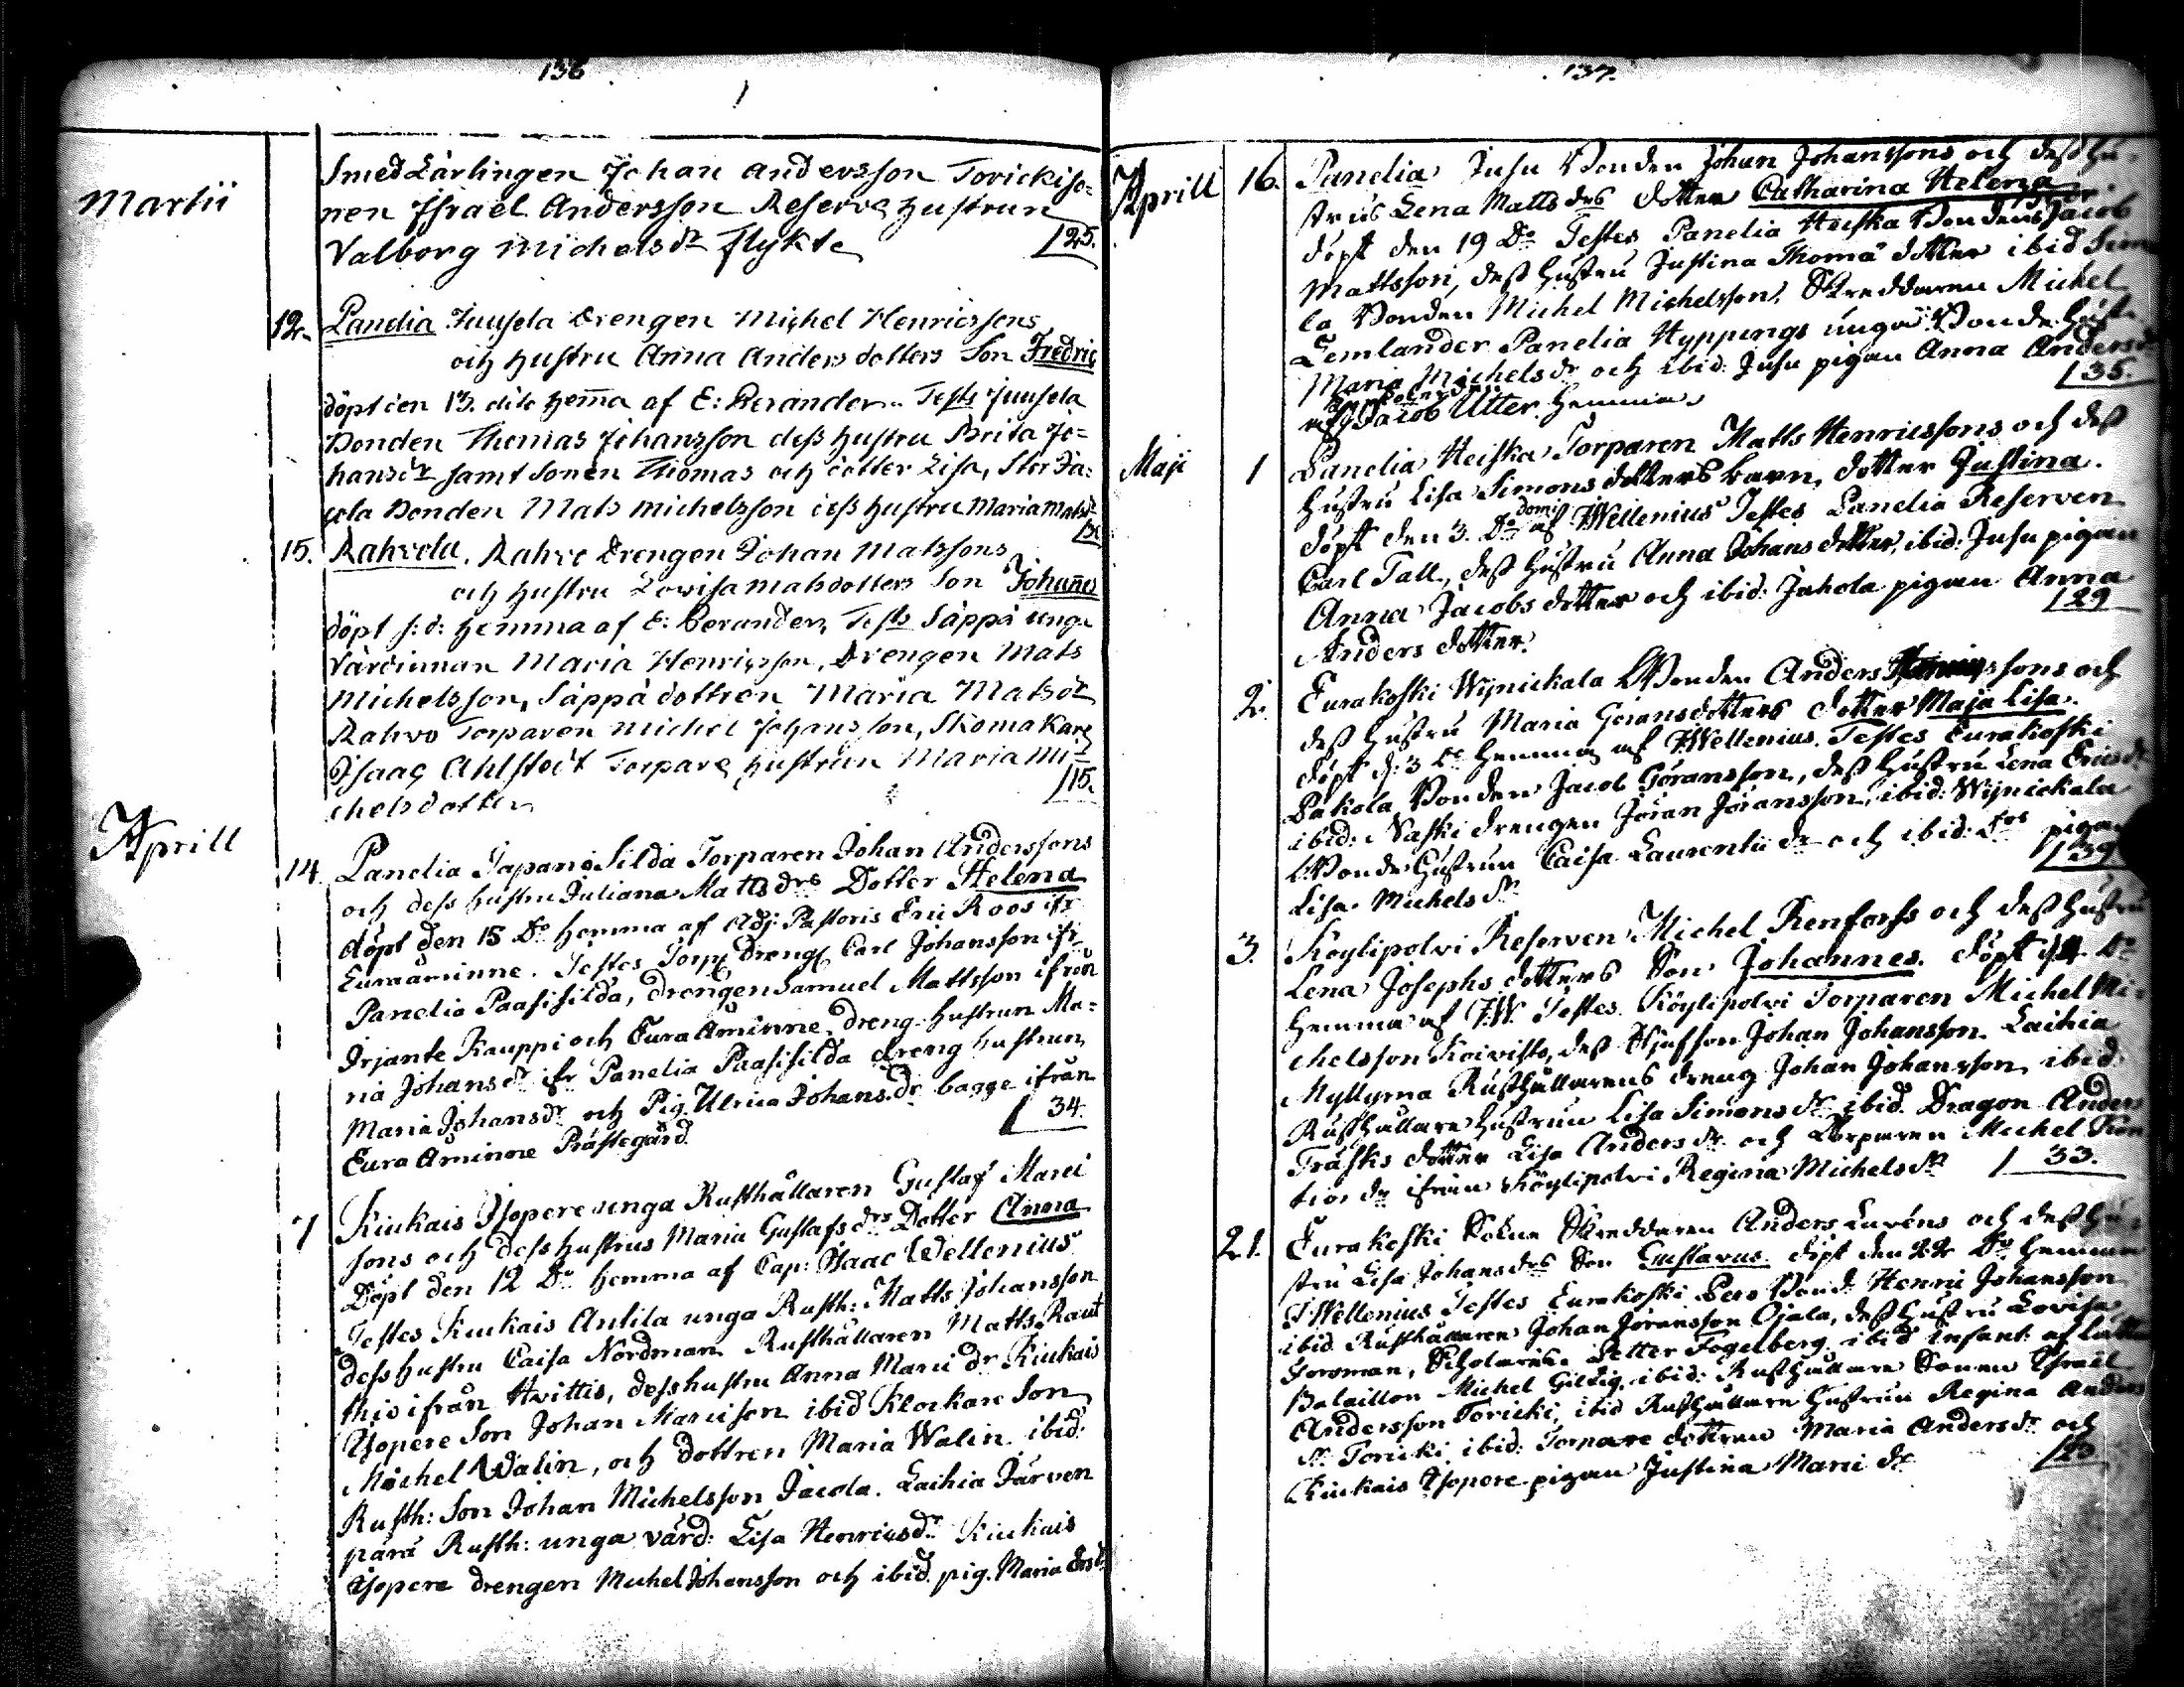 136
Martii
Smed Lärlingen Johan Andersson Torickiso=
nen Israel Andersson Reserve hustrun
Valborg Michelsdr Flykte
/25.
12. Panelia Juusela Drengen Michel Henricssons
och hustru Anna Andersdotters Son Fredric
döpt den 13. dito hem̄a af E: Berander. Tests Juusela
Bonden Thomas Johansson dess hustru Brita Jo=
hansdr samt Sonen Thomas och dotter Lisa, Stor Ja=
cola Bonden Mats Michelsson dess hustru Maria Matsdr
15. Rahvola. Rahvo Drengen Johan Matssons
och hustru Lovisa Matsdotters Son Johan̄es
döpt s: d: hemma af E: Berander, Tests Säppä unga
Värdinnan Maria Henricsson, Drengen Mats
Michelsson, Säppä dottren Maria Matsdr
Rahvo Torparen Michel Johansson, Skomakare
Isaac Ahlstedt Torpare hustrun Maria Mi=
chelsdotter
/15.
Aprill
14. Panelia Japani Silda Torparen Johan Anderssons
och dess hustru Juliana Matts drs Dotter Helena
döpt den 15 Do hemma af Adj: Pastoris Eric Roos ifr
Euraåminne. Testes Torp: Dreng: Carl Johansson ifr
Panelia Paasisilda, drengen Samuel Mattsson ifrån
Irjante Kauppi och Eura Åminne dreng hustrun Ma=
ria Johansdr ifr Panelia Paasisilda dreng hustrun
Maria Johansdr och Pig. Ulrica Johansdr bagge ifrån
Eura Åminne Prästegård.
/34.
7 Kiukais Isopere unga Rusthållaren Gustaf Marci
sons och dess hustrus Maria Gustafs drs Dotter Anna
Döpt den 12 Do hemma af Cap: Isaac Wellenius
Testes Kiukais Anttila unga Rusth: Matts Johansson
dess hustru Caisa Nordman Rusthållaren Matts Raut
thio ifrån Hvittis, dess hustru Anna Marci dr Kiukais
Isopere Son Johan Marcisson ibid Klockare Son
Michel Walin, och dottren Maria Walin ibid:
Rusth: Son Johan Michelsson Jacola. Laihia Järven
pära Rusth: unga värd: Lisa Henricsdr Kiukais
Isopere drengen Michel Johansson och ibid. pig. Maria Ersdr
137.
Aprill 16. Panelia Jusu Bonden Johan Johanssons och dess hu=
strus Lena Matts drs dotter Catharina Helena
döpt den 19 Do Testes Panelia Heiska Bonden Jacob
Mattsson, dess hustru Justina Thomä dotter ibid Sim
la Bonden Michel Michelsson, Skreddaren Michel
Lemlander Panelia Hyppings unga Bonde hust.
Maria Michelsdr och ibid: Jusu pigan Anna Andersdr
af Jacob Utter. hemma
/35.
Maji 1 Panelia Heiska Torparen Matts Henricssons och dess
hustru Lisa Simons dotters barn, dotter Justina.
döpt den 3. Do domi af IWellenius Testes Panelia Reserven
Carl Tall, dess hustru Anna Johans dotter, ibid: Jusu pigan
Anna Jacobs dotter och ibid: Jakola pigan Anna
Anders dotter.
/29
2. Eurakoski Wijnickala Bonden Anders ssons och
dess hustru Maria Göransdotters dotter Maja Lisa.
döpt d: 3 Do hemma af IWellenius. Testes Eurakoski
Pakola Bonden Jacob Göransson, dess hustru Lena Ericsdr
ibid: Naski drengen Jöran Jöransson, ibid: Wijnickala
Bonde hustrun Caisa Laurentii dr och ibid: pigan
Lisa Michels dr
/39
3. Köylipolvi Reserven Michel Renforss och dess hustru
Lena Josephs dotters Son Johannes. döpt d 4 Do
hemma af IW. Testes. Köylipolvi Torparen Michel Mi=
chelsson Koivisto, dess Stjufson Johan Johansson. Laihia
Myllyma Rusthållarens dreng Johan Johansson, ibid:
Rusthållare hustrun Lisa Simons dr ibid. Dragon Anders
Träsks dotter Lisa Anders dr och Torparen Michel Kon
tios dr ifrån Köylipolvi Regina Michels dr
/33.
21. Eurakoski Sokne Skreddaren Anders Luréns och dess hu=
stru Lisa Johans drs Son Gustavus. döpt den 22 Do hemma
IWellenius Testes Eurakoski Pero Bond: Henric Johansson
ibid Rusthållaren Johan Jöransson Ojala, dess hustru Lovisa
Forsman, Scholaris Petter Fogelberg ibid Infant: af Lätta
Bataillon Michel Gilzig, ibid: Rusthållare Sonen Israel
Andersson Toricki, ibid Rusthållare hustrun Regina Anders
dr Toricki ibid: Torpare dottren Maria Andersdr och
Kiukais Isopere pigan Justina Marci dr
/23